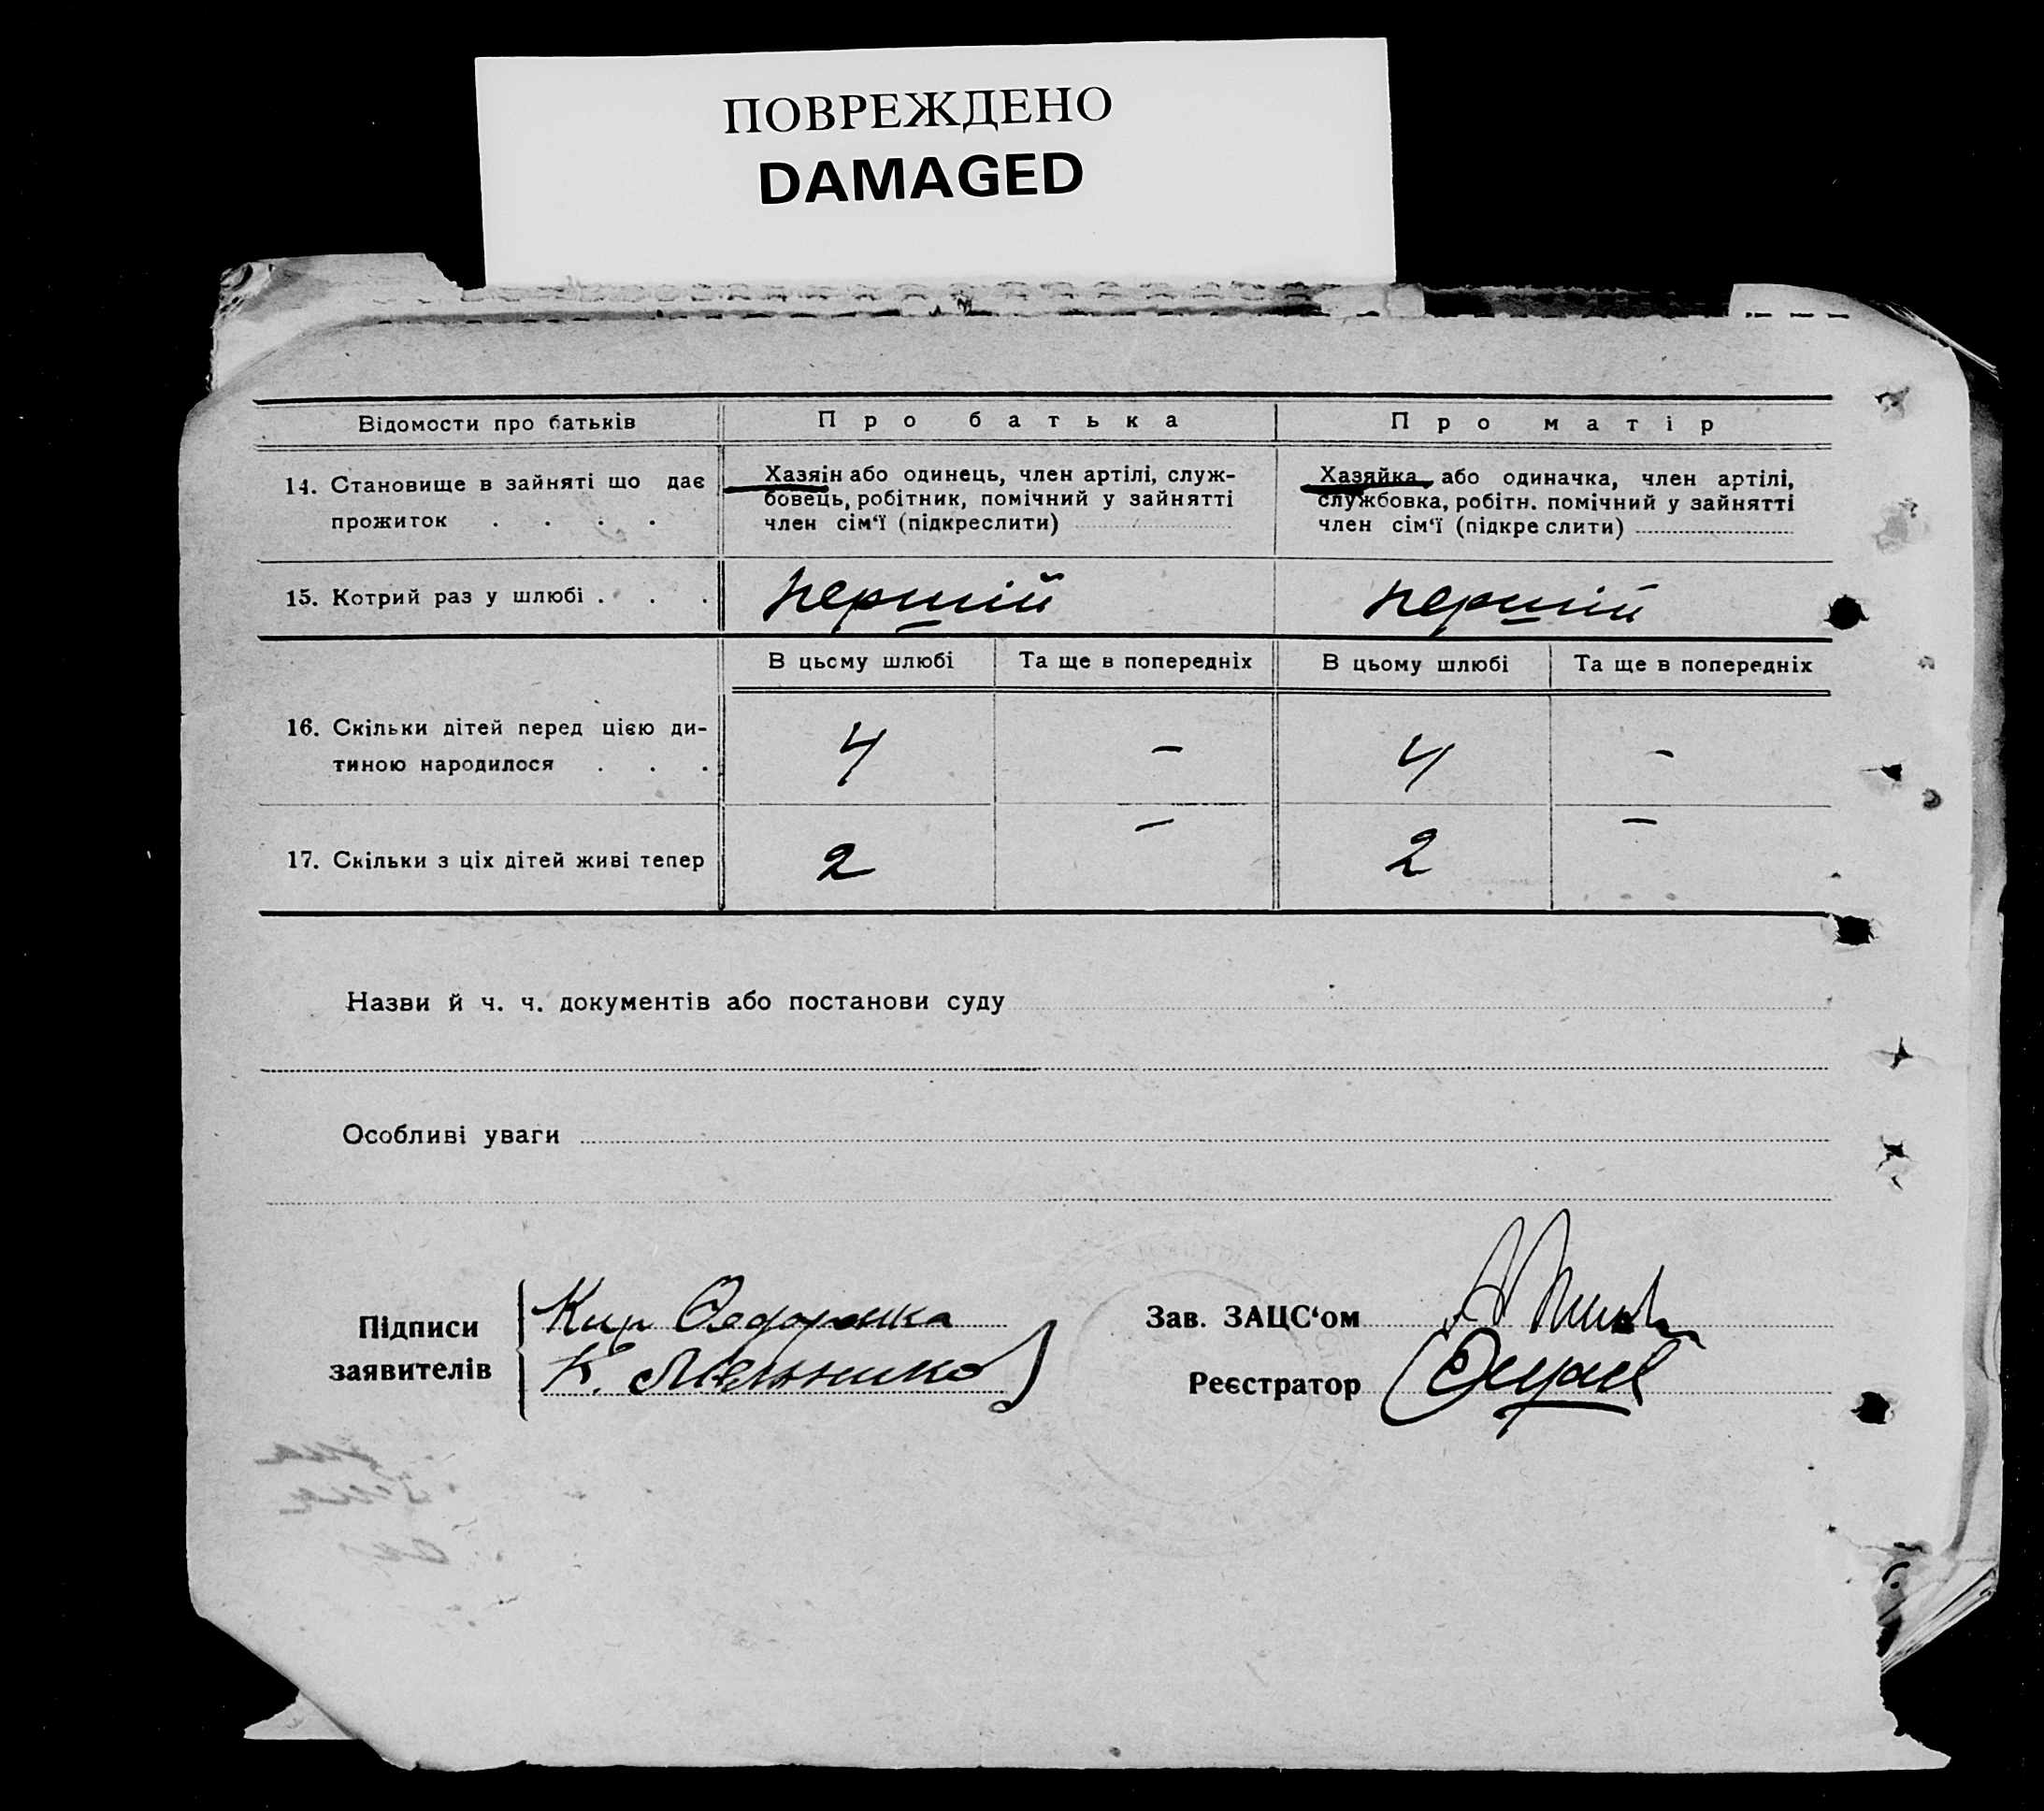 ПОВРЕЖДЕНО
DAMAGED
Відомости про батьків
Про батька
Про матір
14. Становище в зайняті що дає
прожиток . . . .
Хазяін або одинець, член артілі, служ-
бовець, робітник, помічний у зайнятті
член сім‘ї (підкреслити)
Хазяйка або одиначка, член артілі,
службовка, робітн. помічний у зайнятті
член сім‘ї (підкреслити)
15. Котрий раз у шлюбі . . .
першій
першій
В цьому шлюбі
Та ще в попередніх
В цьому шлюбі
Та ще в попередніх
16. Скільки дітей перед цією ди-
тиною народилося . . .
4
–
4
–
17. Скільки з ціх дітей живі тепер
2
–
2
–
Назви й ч. ч. документів або постанови суду
Особливі уваги
Підписи
заявителів
Кир
К.
Зав. ЗАЦС‘ом
Реєстратор